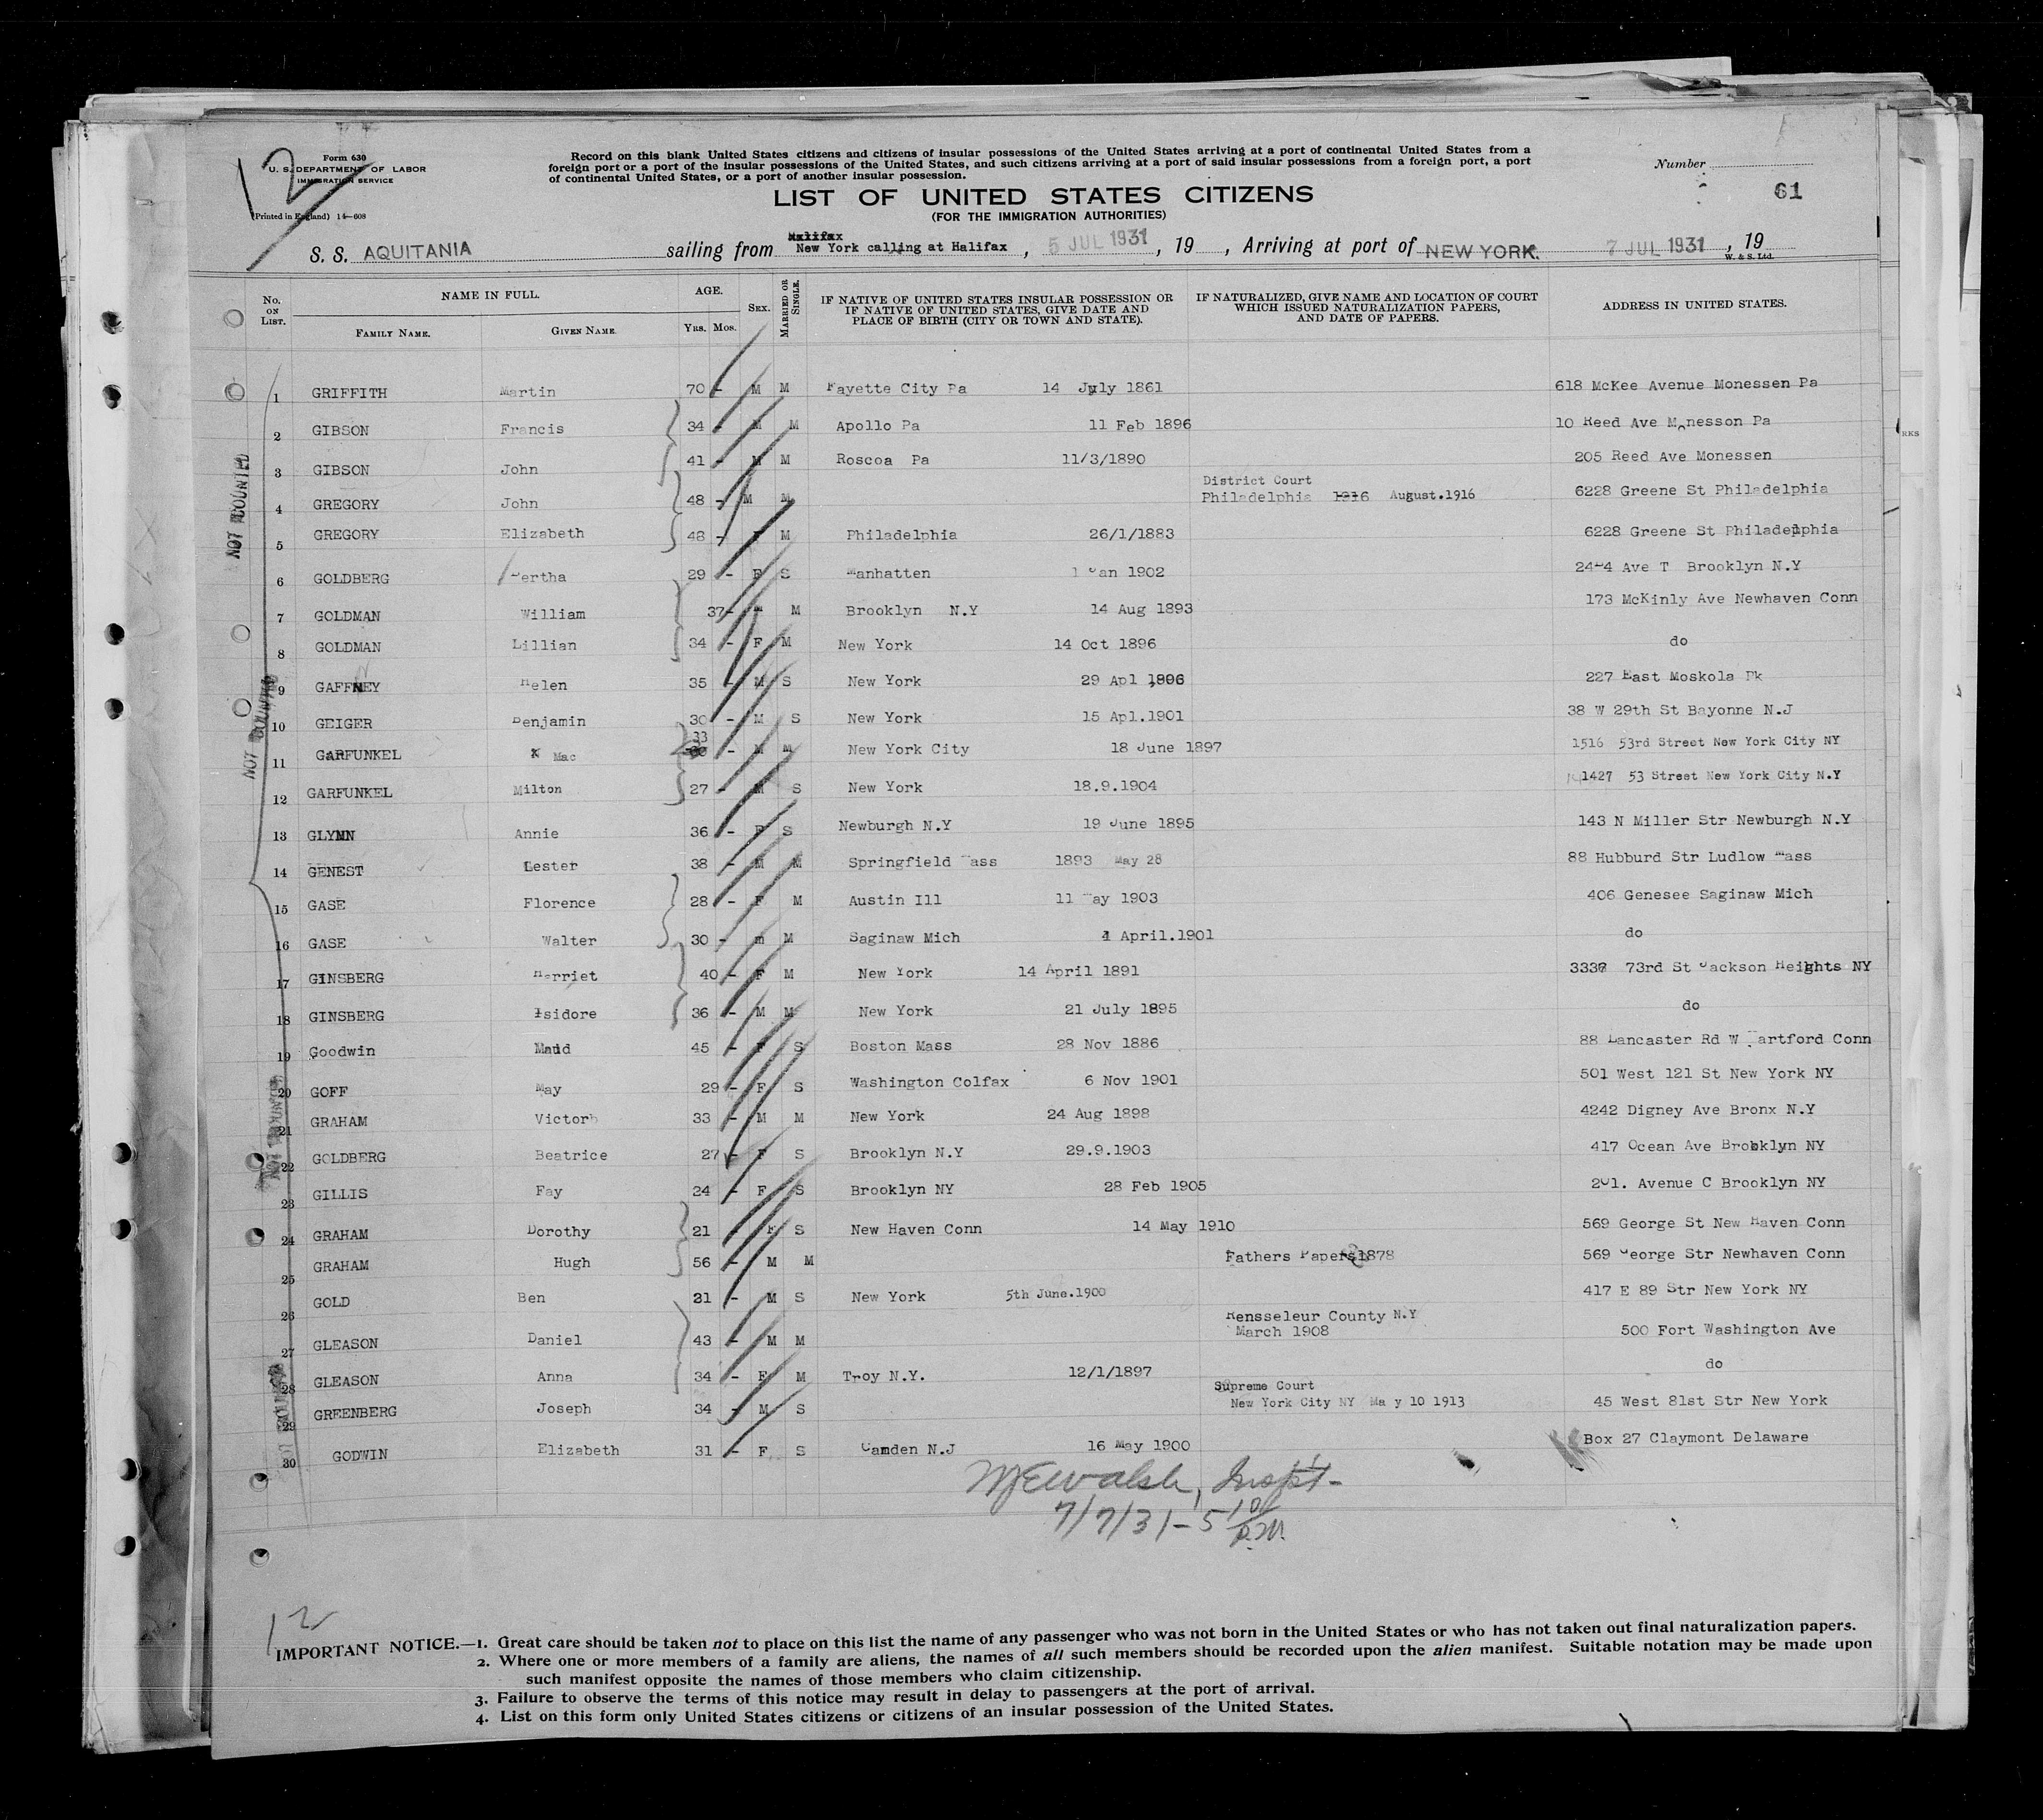 Form 630
U. S. DEPARTMENT OF LABOR
IMMIGRATION SERVICE
(Printed in England) 14—608
12
Record on this blank United States citizens and citizens of insular possessions of the United States arriving at a port of continental United States from a
foreign port or a port of the insular possessions of the United States, and such citizens arriving at a port of said insular possessions from a foreign port, a port
of continental United States, or a port of another insular possession.
Number
61
LIST OF UNITED STATES CITIZENS
(FOR THE IMMIGRATION AUTHORITIES)
S. S. AQUITANIA sailing from Halifax New York calling at Halifax, 5 JUL 1931, 19 , Arriving at port of NEW YORK. 7 JUL 1931, 19
W. & S. Ltd.
No. ON LIST. NAME IN FULL. FAMILY NAME. GIVEN NAME. AGE. YRS. MOS. SEX. MARRIED OR SINGLE. IF NATIVE OF UNITED STATES INSULAR POSSESSION OR IF NATIVE OF UNITED STATES, GIVE DATE AND PLACE OF BIRTH (CITY OR TOWN AND STATE). IF NATURALIZED, GIVE NAME AND LOCATION OF COURT WHICH ISSUED NATURALIZATION PAPERS, AND DATE OF PAPERS. ADDRESS IN UNITED STATES.
1 GRIFFITH Martin 70 - M M Fayette City Pa 14 July 1861 618 McKee Avenue Monessen Pa
2 GIBSON Francis 34 - M M Apollo Pa 11 Feb 1896 10 Reed Ave Monesson Pa
3 GIBSON John 41 - M M Roscoa Pa 11/3/1890 205 Reed Ave Monessen
4 GREGORY John 48 - M M District Court Philadelphia 1916 August.1916 6228 Greene St Philadelphia
5 GREGORY Elizabeth 48 - F M Philadelphia 26/1/1883 6228 Greene St Philadelphia
6 GOLDBERG Bertha 29 - F S Manhatten 1 Jan 1902 24-4 Ave T Brooklyn N.Y
7 GOLDMAN William 37- M M Brooklyn N.Y 14 Aug 1893 173 McKinly Ave Newhaven Conn
8 GOLDMAN Lillian 34 - F M New York 14 Oct 1896 do
9 GAFFNEY Helen 35 - M S New York 29 Apl 1896 227 East Moskola Pk
10 GEIGER Benjamin 30 - M S New York 15 Apl.1901 38 W 29th St Bayonne N.J
11 GARFUNKEL Mac 33 - M M New York City 18 June 1897 1516 53rd Street New York City NY
12 GARFUNKEL Milton 27 - M S New York 18.9.1904 1427 53 Street New York City N.Y
13 GLYNN Annie 36 - F S Newburgh N.Y 19 June 1895 143 N Miller Str Newburgh N.Y
14 GENEST Lester 38 - M M Springfield Mass 1893 May 28 88 Hubburd Str Ludlow Mass
15 GASE Florence 28 - F M Austin Ill 11 May 1903 406 Genesee Saginaw Mich
16 GASE Walter 30 - m M Saginaw Mich 4 April.1901 do
17 GINSBERG Harriet 40 - F M New York 14 April 1891 73rd St Jackson Heights NY
18 GINSBERG Isidore 36 - M M New York 21 July 1895 do
19 Goodwin Maud 45 - F S Boston Mass 28 Nov 1886 88 Lancaster Rd W Hartford Conn
20 GOFF May 29 - F S Washington Colfax 6 Nov 1901 501 West 121 St New York NY
21 GRAHAM Victor 33 - M M New York 24 Aug 1898 4242 Digney Ave Bronx N.Y
22 GOLDBERG Beatrice 27 - F S Brooklyn N.Y 29.9.1903 417 Ocean Ave Brooklyn NY
23 GILLIS Fay 24 - F S Brooklyn NY 28 Feb 1905 201. Avenue C Brooklyn NY
24 GRAHAM Dorothy 21 - F S New Haven Conn 14 May 1910 569 George St New Haven Conn
25 GRAHAM Hugh 56 - M M Fathers Papers 1878 569 George Str Newhaven Conn
26 GOLD Ben 31 - M S New York 5th June.1900 417 E 89 Str New York NY
27 GLEASON Daniel 43 - M M Rensseleur County N.Y March 1908 500 Fort Washington Ave
28 GLEASON Anna 34 - F M Troy N.Y. 12/1/1897 do
29 GREENBERG Joseph 34 - M S Supreme Court New York City NY Ma y 10 1913 45 West 81st Str New York
30 GODWIN Elizabeth 31 - F S Camden N.J 16 May 1900 Box 27 Claymont Delaware
NOT COUNTED
NOT COUNTED
NOT COUNTED
NOT COUNTED
MJEWalsh, Inspt-
7/7/31 - 5 10/P.M.
12
IMPORTANT NOTICE.—1. Great care should be taken not to place on this list the name of any passenger who was not born in the United States or who has not taken out final naturalization papers.
2. Where one or more members of a family are aliens, the names of all such members should be recorded upon the alien manifest. Suitable notation may be made upon
such manifest opposite the names of those members who claim citizenship.
3. Failure to observe the terms of this notice may result in delay to passengers at the port of arrival.
4. List on this form only United States citizens or citizens of an insular possession of the United States.
RKS